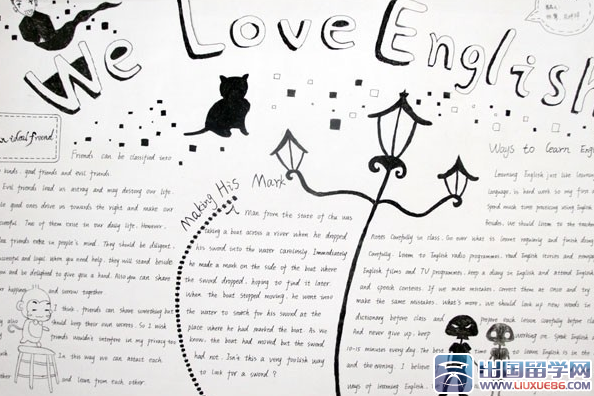 We Love English
Friends can be classified into
kinds. good friends and evil friends.
Evil friends lead us astray and may destroy our life.
Good ones drive us towards the right and make our
Two of them exist in our daily life. However,
friends exist in people's mind. They should be diligent,
and loyal. When you need help, they will stand beside
and be delighted to give you a hand. Also you can share
happiness and sorrow together
I think, friends can share something but
also should keep their own secrets. So I wish
friends wouldn't interfere in my privacy too
In this way we can attract each
and learn from each other.
Making His Mark
A man from the state of chu was
taking a boat across a river when he dropped
his sword into the water carelessly. Immediately
he made a mark on the side of the boat where
the sword dropped, hoping to find it later.
When the boat stopped moving, he went into
the water to search for his sword at the
place where he had marked the boat. As we
know, the boat had moved but the sword
had not. Isn't this a very foolish way
to look for a sword?
Ways to learn Eng
Learning English just like learning
Language, is hard work so my first a
Spend much time processing using English
Besides, we should listen to the teacher
Notes carefully in class. Go over what is learnt regularly and finish doing
Carefully. Listen to English radio programmes, read English stories and newspa
English films and TV programmes, keep a diary in English and attend English
and speech contests. If we make mistakes, correct them at once and try
make the same mistakes. What's more, we should look up new words in
dictionary before class and prepare each lesson carefully before class
And never give up. keep working on some English
10-15 minutes every day. The best time to learn English is in the
and the evening. I believe
ways of learning English.
出国留学网
WWW.LIUXUE86.COM